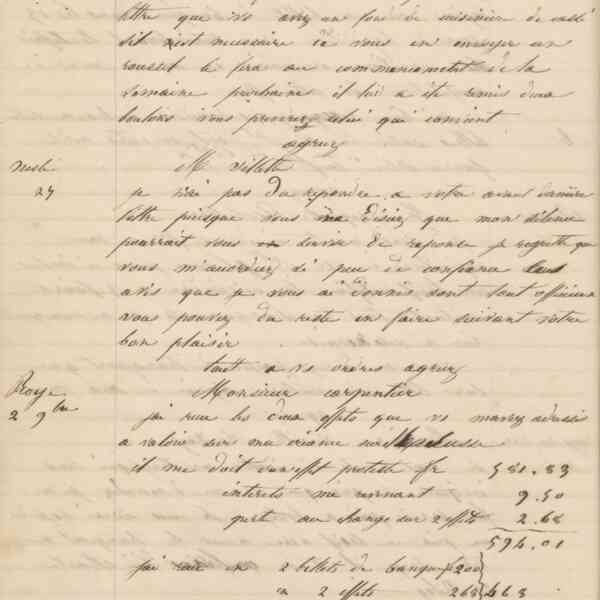 lettre que vs avez un fond de cuisinière de cassé
s'il est nécessaire de vous en envoyer un
rousset le fera au commencement de la
semaine prochaine il lui a été remis deux
boulons vous prendrez celui qui convient
agréez
Nesle
27
M. Villette
je n'ai pas du repondre a votre avant dernière
lettre puisque vous me disiez que mon silence
pourrait vous en servir de reponse je regrette que
vous m'accordiez si peu de confiance les
avis que je vous ai donnés sont tout officieux
vous pouvez du reste en faire suivant votre
bon plaisir
tout a vs ordres agréez
Roye
2 9bre
Monsieur carpentier
jai recu les deux effets que vs mavez adressés
a valoir sur ma créance sur
il me doit un effet protesté fr 581.83
interets me revenant 9.50
perte au change sur 2 effets 2.68
594.01
jai recu en 2 billets de banque f 200
en 2 effets 263 463